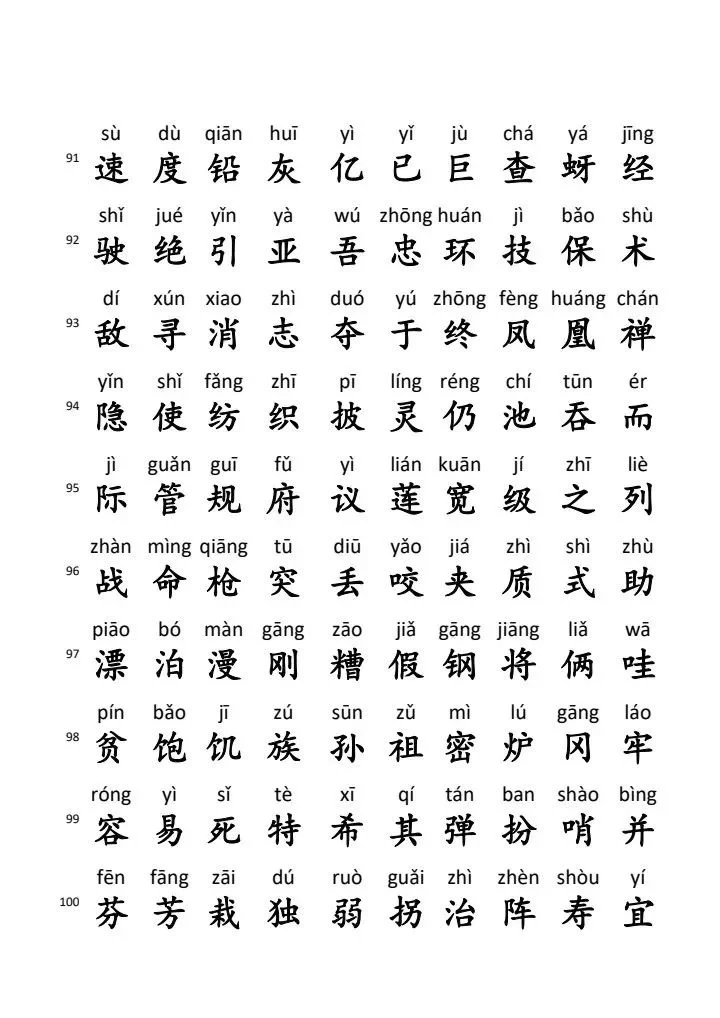 sù dù qiān huī yì yǐ jù chá yá jīng
91 速 度 铅 灰 亿 已 巨 查 蚜 经
shǐ jué yǐn yà wú zhōng huán jì bǎo shù
92 驶 绝 引 亚 吾 忠 环 技 保 术
dí xún xiao zhì duó yú zhōng fèng huáng chán
93 敌 寻 消 志 夺 于 终 凤 凰 禅
yǐn shǐ fǎng zhī pī líng réng chí tūn ér
94 隐 使 纺 织 披 灵 仍 池 吞 而
jì guǎn guī fǔ yì lián kuān jí zhī liè
95 际 管 规 府 议 莲 宽 级 之 列
zhàn mìng qiāng tū diū yǎo jiá zhì shì zhù
96 战 命 枪 突 丢 咬 夹 质 式 助
piāo bó màn gāng zāo jiǎ gāng jiāng liǎ wā
97 漂 泊 漫 刚 糟 假 钢 将 俩 哇
pín bǎo jī zú sūn zǔ mì lú gāng láo
98 贫 饱 饥 族 孙 祖 密 炉 冈 牢
róng yì sǐ tè xī qí tán ban shào bìng
99 容 易 死 特 希 其 弹 扮 哨 并
fēn fāng zāi dú ruò guǎi zhì zhèn shòu yí
100 芬 芳 栽 独 弱 拐 治 阵 寿 宜